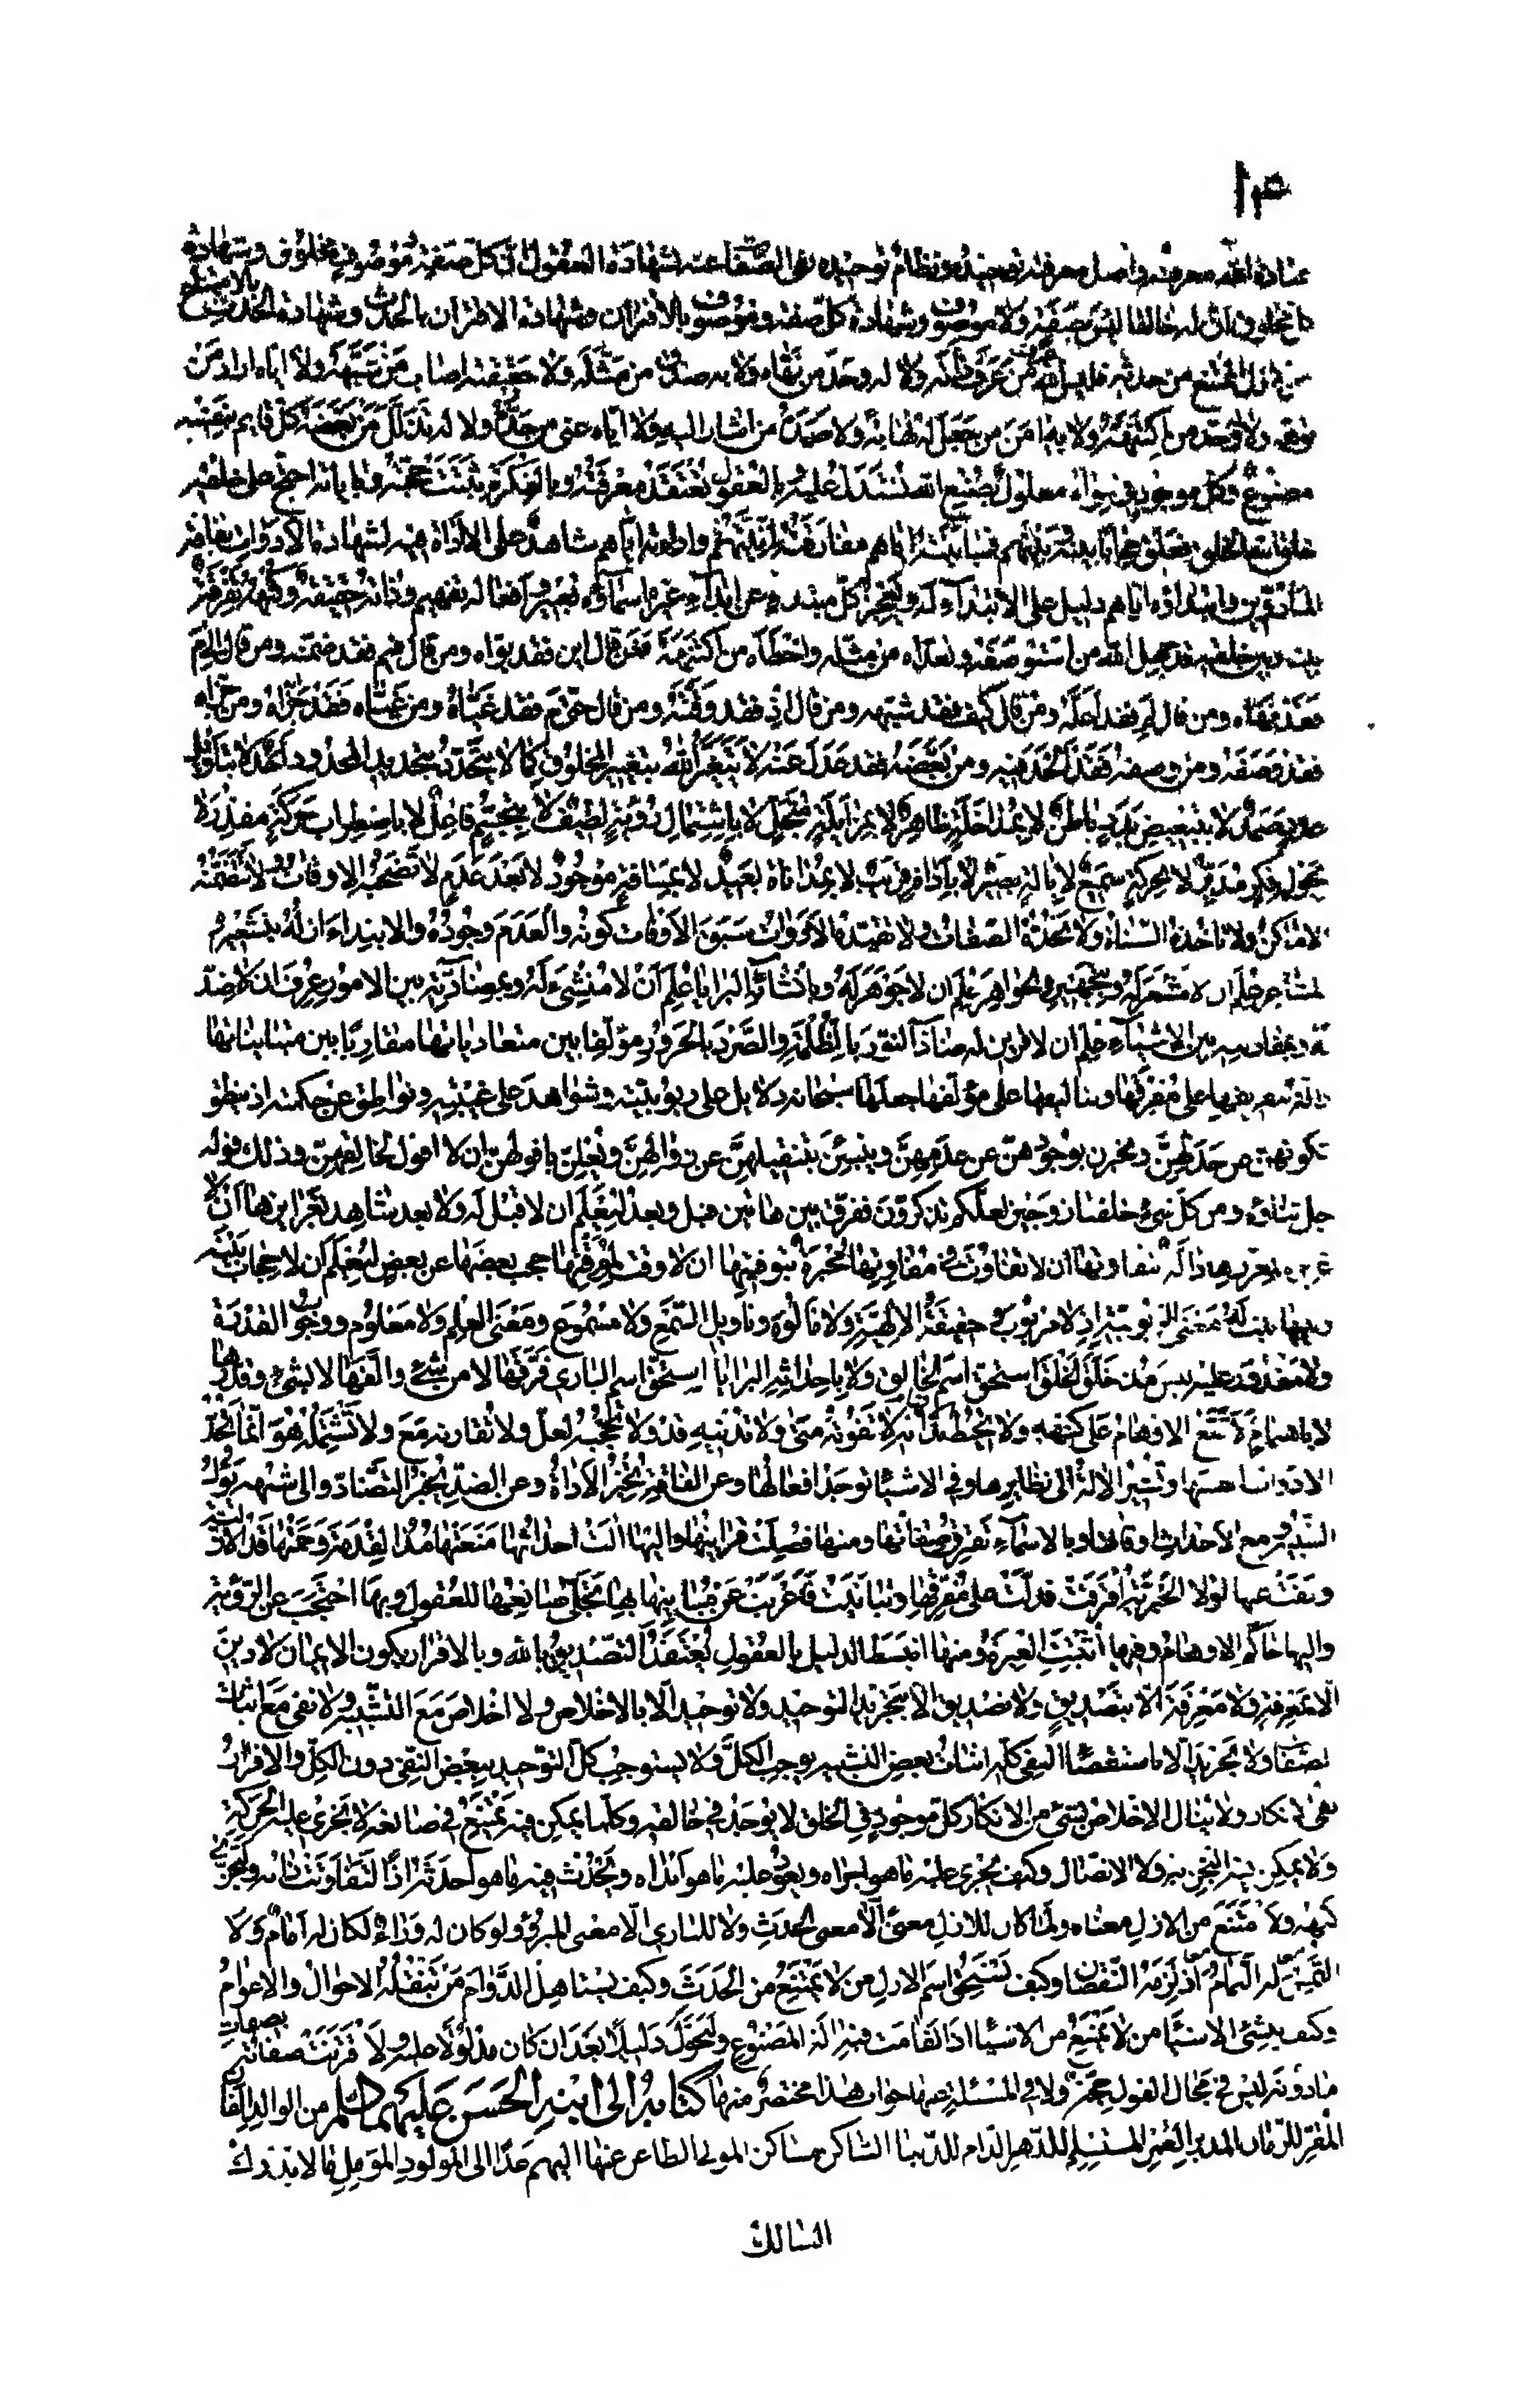 عبادة الله معرفته واصل معرفته توحيده ونظام توحيده نفى الصفات عنه لشهادة العقول ان كل صفة وموصوف مخلوق وشهادة
كل مخلوق ان له خالقا ليس بصفة ولا موصوف وشهادة كل صفة وموصوف بالاقتران وشهادة الاقتران بالحدث وشهادة الحدث بالامتناع
من الازل الممتنع من حدثه فليس الله من عرف ذاته ولا له وحد من نهاه ولا به صدق من مثله ولا حقيقته اصاب من شبهه ولا اياه اراد من
توهمه ولا له وحد من اكتنهه ولا به امن من جعل له نهاية ولا صمده من اشار اليه ولا اياه عنى من حده ولا له تذلل من بعضه كل قايم بنفسه
مصنوع وكل موجود في سواه معلول بصنع الله يستدل عليه وبالعقول تعتقد معرفته وبالفكرة تثبت حجته وباياته احتج على خلقه
خلق الله الخلق فعلق حجابا بينه وبينهم فبمباينته اياهم مفارقته انيتهم وادوه اياهم شاهد على الا اداة فيه لشهادة الادوات بفاقة
المأدين وابتداؤه اياهم دليل على الا ابتداء له ولعجز كل مبتدء عن ابداء غيره اسماؤه تعبير وافعاله تفهيم وذاته حقيقة وكنهه تفرقة
بينه وبين خلقه قد جهل الله من استوصفه وتعداه من مثله واخطأه من اكتنهه فمن قال اين فقد بواه ومن قال فيم فقد ضمنه ومن قال الى م
فقد نهاه ومن قال لم فقد اعله ومن قال كيف فقد شبهه ومن قال اذ فقد وقته ومن قال حتى م فقد غياه ومن غياه فقد جزاه ومن جزاه
فقد وصفه ومن وصفه فقد الحد فيه ومن بعضه فقد عدل عنه لا يتغير الله بتغيير المخلوق كما لا يتحدد بتحديد المحدود احد لا بتاويل
عدد صمد لا بتبعيض بدد باطن لا بمداخلة ظاهر لا بمزايلة متجل لا باشتمال رؤية لطيف لا بتجسم فاعل لا باضطراب حركة مقدر لا
بجول فكرة مدبر لا بحركة سميع لا بآلة بصير لا باداة قريب لا بمداناة بعيد لا بمسافة موجود لا بعد عدم لا تصحبه الاوقات ولا تتضمنه
الاماكن ولا تاخذه السنات ولا تحده الصفات ولا تقيده الادوات سبق الاوقات كونه والعدم وجوده والابتداء ازله بتشعيره
المشاعر علم ان لا مشعر له وبتجهيره الجواهر علم ان لا جوهر له وبانشائه البرايا علم ان لا منشئ له وبمضادته بين الامور عرف ان لا ضد
له وبمقارنته بين الاشياء علم ان لا قرين له ضاد النور بالظلمة والصرد بالحرور مؤلفا بين متعادياتها مقاربا بين متبايناتها
دالة بتفريقها على مفرقها وبتاليفها على مؤلفها جعلها سبحانه دلايل على ربوبيته وشواهد على غيبته ونواطق عن حكمته اذ ينطق
تكونهن عن حدثهن ويخبرن بوجودهن عن عدمهن وينبئن بتنقيلهن عن زوالهن ويعلن بافولهن ان لا افول لخالقهن وذلك قوله
جل ثناؤه ومن كل شيء خلقنا زوجين لعلكم تذكرون ففرق بين هاتين قبل وبعد ليعلم ان لا قبل له ولا بعد شاهدة بغرايزها ان لا
غريزة لمغرزها دالة بتفاوتها ان لا تفاوت في مفاوتها مخبرة بتوقيتها ان لا وقت لموقتها حجب بعضها عن بعض ليعلم ان لا حجاب بينه
وبينها ثبت له معنى الربوبية اذ لا مربوب وحقيقة الالهية ولا مألوه وتاويل السمع ولا مسموع ومعنى العلم ولا معلوم ووجوب القدرة
ولا مقدور عليه ليس مذ خلق الخلق استحق اسم الخالق ولا باحداثه البرايا استحق اسم الباري فرقها لا من شيء والفها لا بشيء وقدرها
لا باهتمام لا تقع الاوهام على كنهه ولا تحيط الافهام بذاته لا تفوته متى ولا تدنيه قد ولا تحجبه لعل ولا تقارنه مع ولا تشتمله هو انما تحد
الادوات انفسها وتشير الالة الى نظايرها وفي الاشياء توجد افعالها وعن الفاقة تخبر الاداة وعن الضد يخبر التضاد والى شبهه يؤل
الشبيه ومع الاحداث اوقاتها وبالاسماء تفترق صفاتها ومنها فصلت قراينها واليها الت احداثها منعتها مذ القدمة وحمتها قد الازلية
ونفت عنها لولا الجبرية افترقت فدلت على مفرقها وتباينت فاعربت عن مباينها بها تجلى صانعها للعقول وبها احتجب عن الرؤية
واليها تحاكم الاوهام وفيها اثبتت العبرة ومنها انبسط الدليل بالعقول يعتقد التصديق بالله وبالاقرار يكون الايمان لا دين
الا بمعرفة ولا معرفة الا بتصديق ولا تصديق الا بتجريد التوحيد ولا توحيد الا بالاخلاص ولا اخلاص مع التشبيه ولا نفي مع اثبات
الصفات ولا تجريد الا باستقصاء النفي كله اثبات بعض التشبيه يوجب الكل ولا يستوجب كل التوحيد ببعض النفي دون الكل والاقرار
نفى الانكار ولا ينال الاخلاص بشيء من الانكار كل موجود في الخلق لا يوجد في خالقه وكلما يمكن فيه يمتنع في صانعه لا تجري عليه الحركة
ولا يمكن فيه التجزية ولا الاتصال وكيف يجري عليه ما هو اجراه ويعود عليه ما هو ابتداه ويحدث فيه ما هو احدثه اذا لتفاوتت ذاته ولتجزى
كنهه ولامتنع من الازل معناه ولما كان للازل معنى الا معنى الحدث ولا للباري الا معنى المبروء ولو كان له وراء لكان له امام ولو
التمس له التمام اذ لزمه النقصان وكيف يستحق اسم الازل من لا يمتنع من الحدث وكيف يستاهل الدوام من تنقله الاحوال والاعوام
وكيف ينشئ الاشياء من لا يمتنع من الاشياء اذا لقامت فيه الة المصنوع ولتحول دليلا بعد ان كان مدلولا عليه ولاقترنت صفاته بصفات
ما دونه ليس في محال القول حجة ولا في المسئلة عنها جواب هذا مختصر منها كتابه الى ابنه الحسن عليهما السلم من الوالد الفان
المقر للزمان المدبر العمر المستسلم للدهر الذام للدنيا الساكن مساكن الموتى الظاعن عنها اليهم غدا الى المولود المؤمل ما لا يدرك
السالك